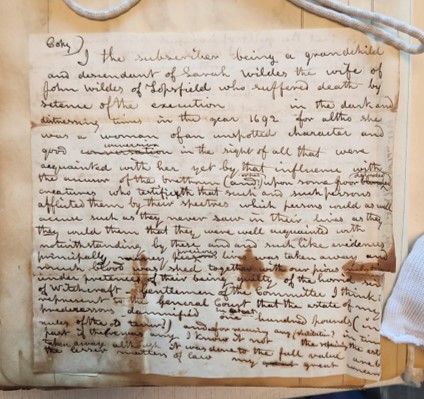 Copy)
I the subscriber being a grandchild
and descendant of Sarah Wildes the wife of
John Wildes of Topsfield who suffered death by
setence of the execution in the dark and
times in the year 1692 for altho she
was a woman of an unspotted character and
good conversation in the sight of all that were
acquainted with her yet by that influence with
the minds of the (and) upon some poor
creatures who testifyeth that such and such persons
afflicted them by their spectres which persons could as well
because such as they never saw in their lives as they
they could them that they were well acquainted with
notwithstanding by these and and such like evidences
principally many lives was taken away and
much blood was shed together with our pious
under pretence of their being guilty of the horrid sin
of Witchcraft gentlemen of the Committee I think
represent to the General Court that the estate of my
predecessors demnified one hundred pounds (in
of the or any
part if there was any I know it not the
taken away although it was done to the full value and
the lesser matters of law my great